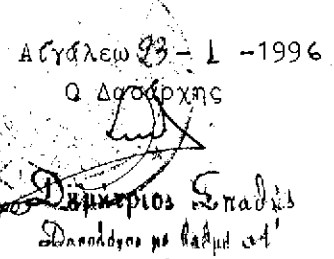 Αιγάλεω 23 - 1 - 1996
Ο Δασάρχης
Δημήτριος Σπαθής
Δασολόγος με βαθμό Α'